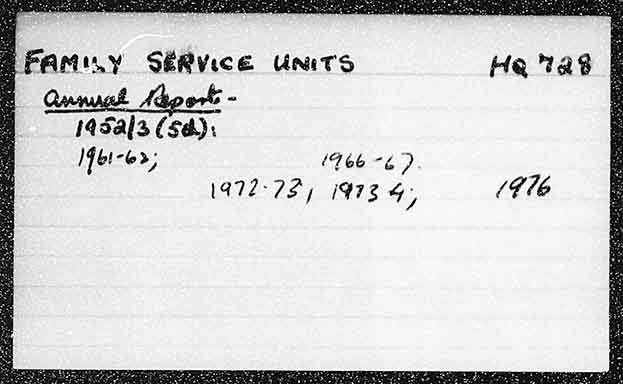 FAMILY SERVICE UNITS HQ 728
Annual Report -
1952/3 (5d);
1961-62; 1966-67.
1972-73, 1973 4; 1976